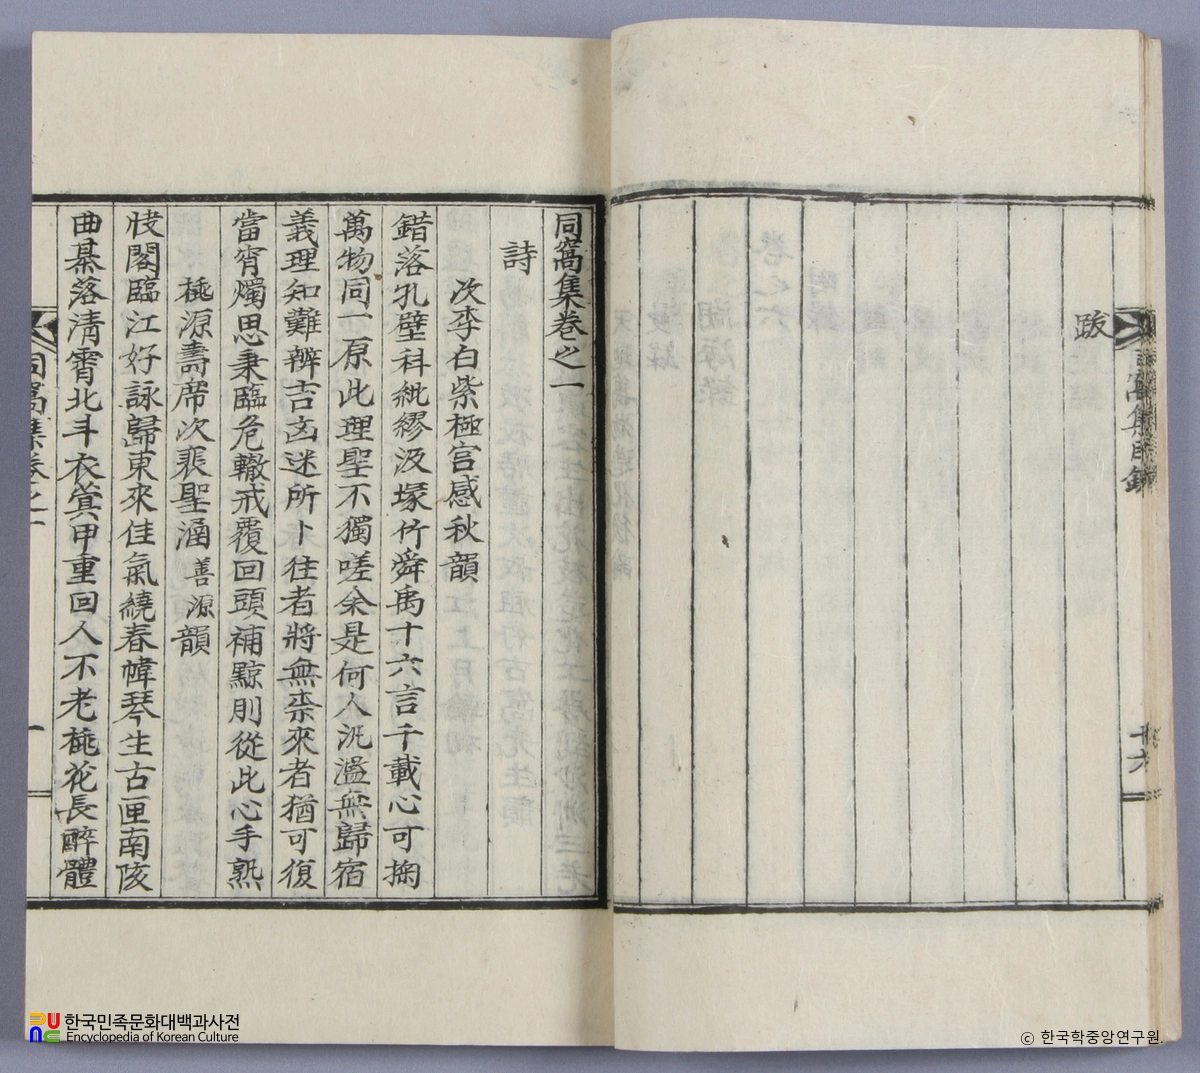 跋
窩集目錄
十六
同窩集卷之一
詩
次李白紫極宮感秋韻
錯落孔壁科紕繆汲塚竹舜禹十六言千載心可掬
萬物同一原此理聖不獨嗟余是何人汎濫無歸宿
義理知難辨吉凶迷所卜往者將無柰來者猶可復
當宵燭思秉臨危轍戒覆回頭補黥刖從此心手熟
桃源壽席次裴聖涵善源韻
閣臨江好詠歸東來佳氣繞春幃琴生古匣南陔
曲棊落清霄北斗衣蓂甲重回人不老桃花長醉體
同窩集卷之一
一
한국민족문화대백과사전
Encyclopedia of Korean Culture
ⓒ 한국학중앙연구원.